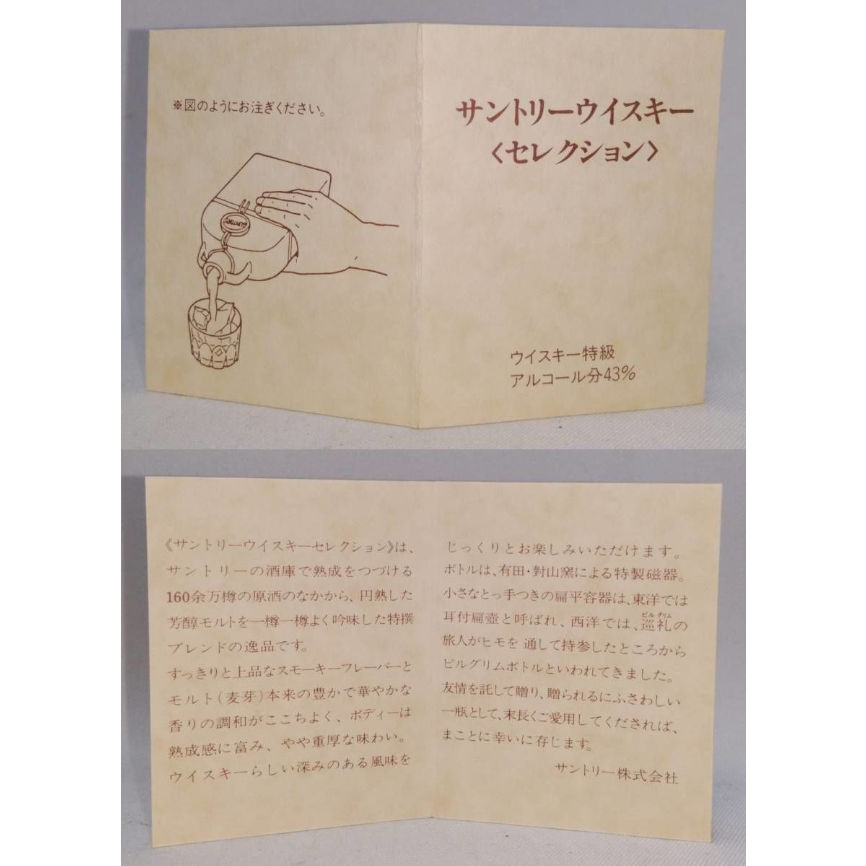 ※図のようにお注ぎください。
サントリーウイスキー
〈セレクション〉
ウイスキー特級
アルコール分43%
《サントリーウイスキーセレクション》は、
サントリーの酒庫で熟成をつづける
160余万樽の原酒のなかから、円熟した
芳醇モルトを一樽一樽よく吟味した特撰
ブレンドの逸品です。
すっきりと上品なスモーキーフレーバーと
モルト(麦芽)本来の豊かで華やかな
香りの調和がここちよく、ボディーは
熟成感に富み、やや重厚な味わい。
ウイスキーらしい深みのある風味を
じっくりとお楽しみいただけます。
ボトルは、有田・對山窯による特製磁器。
小さなとっ手つきの扁平容器は、東洋では
耳付扁壺と呼ばれ、西洋では、巡礼の
ピル グリム
旅人がヒモを通して持参したところから
ピルグリムボトルといわれてきました。
友情を託して贈り、贈られるにふさわしい
一瓶として、末長くご愛用してくだされば、
まことに幸いに存じます。
サントリー株式会社